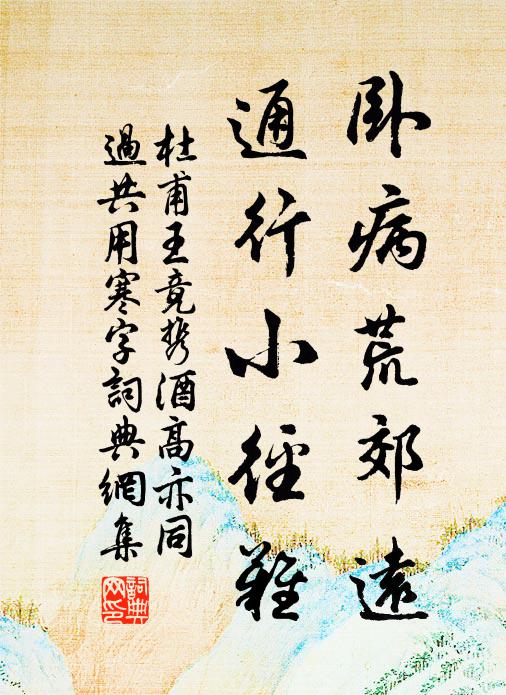 卧病荒郊遠
通行小徑難
杜甫王竟携酒高亦同
過共用寒字詞典網集